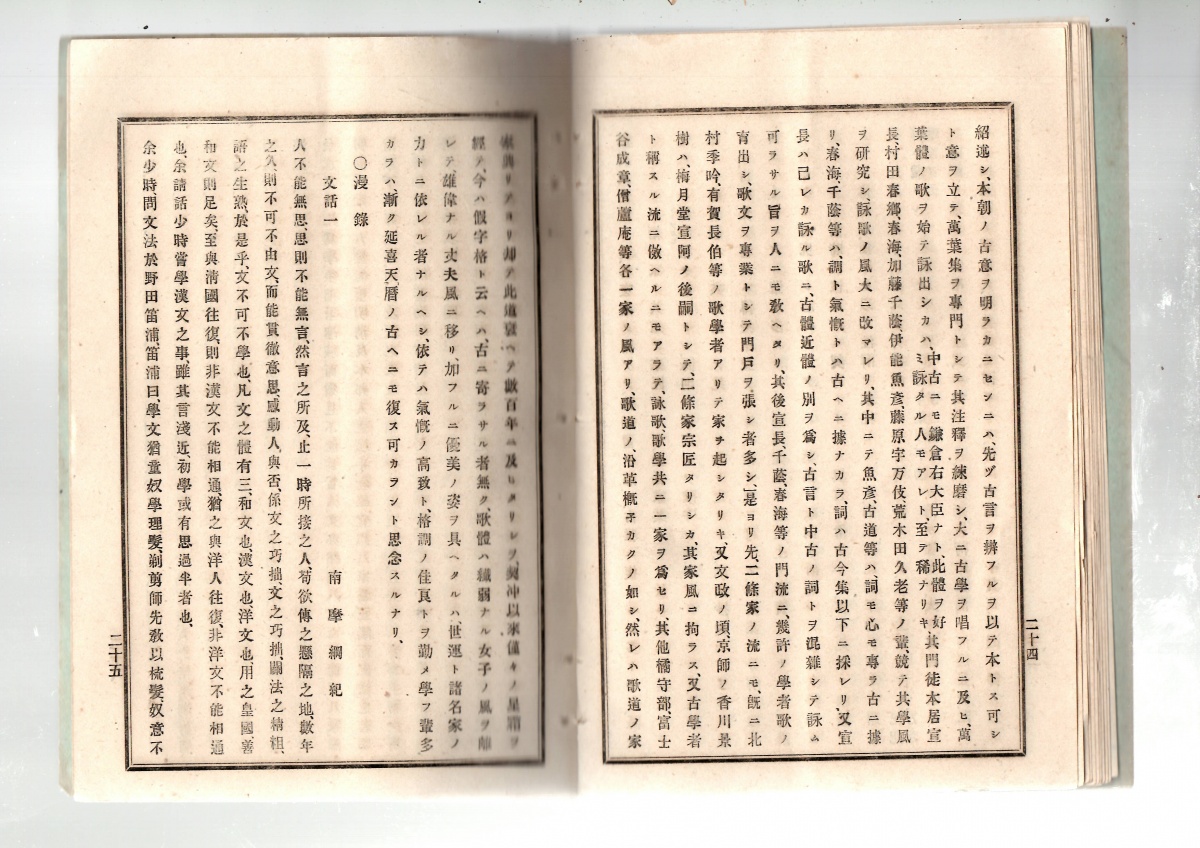 紹述シ、本朝ノ古意ヲ明ラカニセンニハ、先ヅ古言ヲ辨フルヲ以テ本トス可シ
ト意ヲ立テ、萬葉集ヲ專門トシテ其注釋ヲ練磨シ、大ニ古學ヲ唱フルニ及ヒ、萬
葉體ノ歌ヲ始テ詠出シカハ、中古ニモ鎌倉右大臣ナト、此體ヲ好ミ詠タル人モアレト、至テ稀ナリキ其門徒本居宣
長、村田春鄕、春海、加藤千蔭、伊能魚彦、藤原宇万伎、荒木田久老等ノ輩競テ其學風
ヲ研究シ、詠歌ノ風大ニ改マレリ、其中ニテ魚彦、古道等ハ、詞モ心モ專ラ古ニ據
リ、春海千蔭等ハ、調ト氣慨トハ古ヘニ據ナカラ、詞ハ古今集以下ニ採レリ、又宣
長ハ己レカ詠ル歌ニ、古體近體ノ別ヲ爲シ、古言ト中古ノ詞トヲ混雜シテ詠ム
可ラサル旨ヲ人ニモ敎ヘタリ、其後宣長、千蔭、春海等ノ門流ニ、幾許ノ學者歌ノ
育出シ、歌文ヲ專業トシテ門戸ヲ張シ者多シ、是ヨリ先、二條家ノ流ニモ、旣ニ北
村季吟、有賀長伯等ノ歌學者アリテ家ヲ起シタリキ、又文政ノ頃、京師ノ香川景
樹ハ、梅月堂宣阿ノ後嗣トシテ、二條家宗匠タリシカ、其家風ニ拘ラス、又古學者
ト稱スル流ニ傚ヘルニモアラテ、詠歌、歌學共ニ一家ヲ爲セリ、其他橘守部、富士
谷成章、僧蘆庵等各一家ノ風アリ、歌道ノ、沿革槪子カクノ如シ、然レハ歌道ノ家
二十四
リ却テ此道衰ヘテ數百年ニ及ヒタリシヲ、契冲以來
經テ、今ハ假字格ト云ヘハ、古ニ寄ラサル者無ク、歌體ハ纎弱ナル女子ノ風ヲ離
レテ、雄偉ナル丈夫風ニ移リ、加フルニ優美ノ姿ヲ具ヘタルハ、世運ト諸名家ノ
力トニ依レル者ナルヘシ、依テハ氣慨ノ高致ト、格調ノ佳良トヲ勤メ學フ輩多
カラハ、漸ク延喜天曆ノ古ヘニモ復ス可カラント思念スルナリ、
〇漫錄
文話一 南摩綱紀
人不能無思、思則不能無言、然言之所及止一時所接之人、苟欲傳之懸隔之地、數年
之久則不可不由文、而能貫徹意思、感動人與否、係文之巧拙、文之巧拙關法之精粗、
語之生熟、於是乎、文不可不學也、凡文之體有三、和文也、漢文也、洋文也、用之皇國、善
和文則足矣、至與淸國往復、則非漢文不能相通、猶之與洋人往復、非洋文不能相通
也、余請話少時嘗學漢文之事、雖其言淺近、初學或有思過半者也、
余少時、問文法於野田笛浦、笛浦曰、學文猶童奴學理髮、剃剪師先敎以梳髮、奴意不
二十五